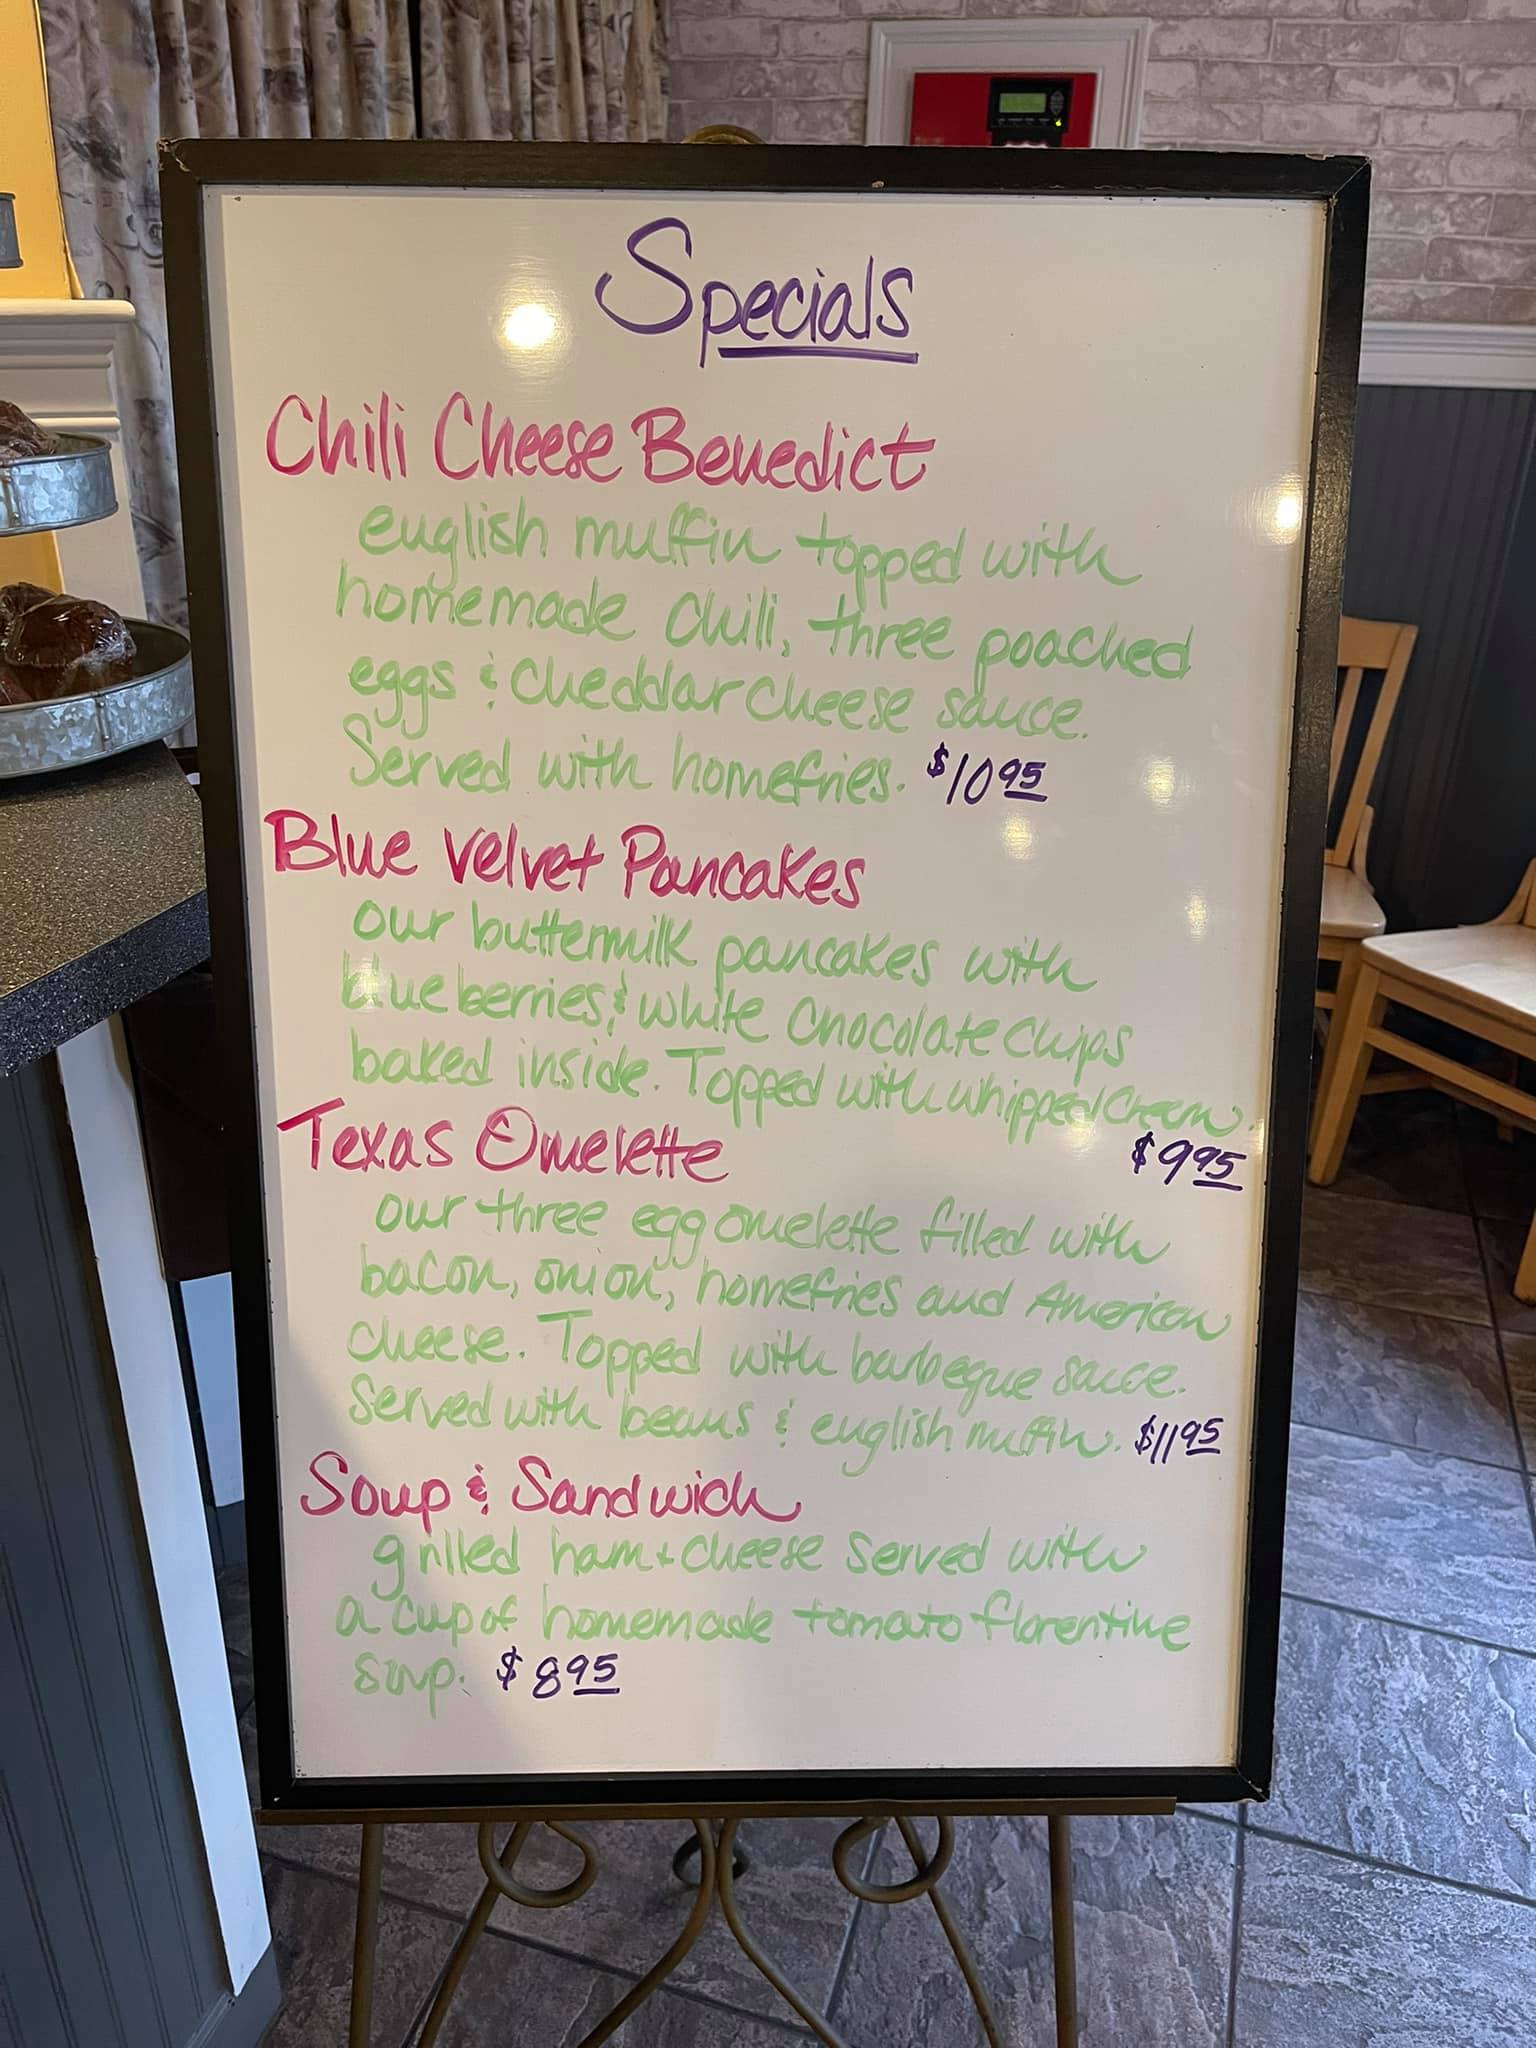 Specials
Chili Cheese Benedict
english muffin topped with
homemade chili, three poached
eggs & cheddar cheese sauce.
Served with homefries. $10 95
Blue Velvet Pancakes
our buttermilk pancakes with
blueberries & white chocolate chips
baked inside. Topped with whipped cream.
$9 95
Texas Omelette
our three egg omelette filled with
bacon, onion, homefries and American
cheese. Topped with barbeque sauce.
Served with beans & english muffin. $11 95
Soup & Sandwich
grilled ham + cheese served with
a cup of homemade tomato florentine
soup. $8 95